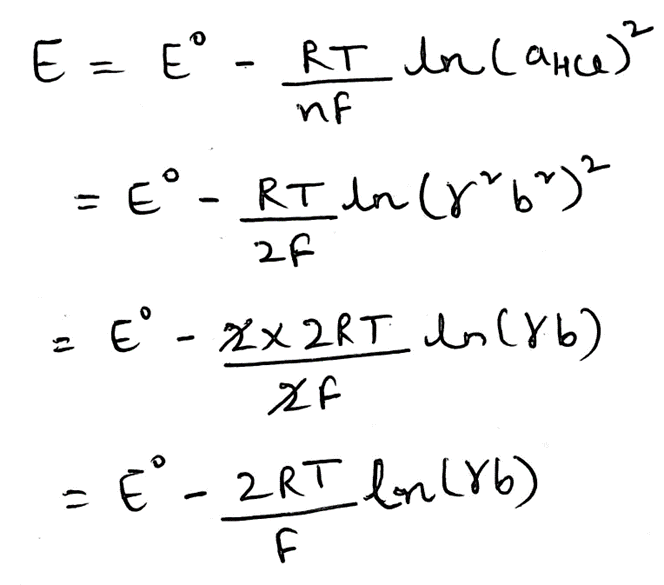 E = E° - RT/nF ln(aHCl)²
= E° - RT/2F ln(γ²b²)²
= E° - 2×2RT/2F ln(γb)
= E° - 2RT/F ln(γb)